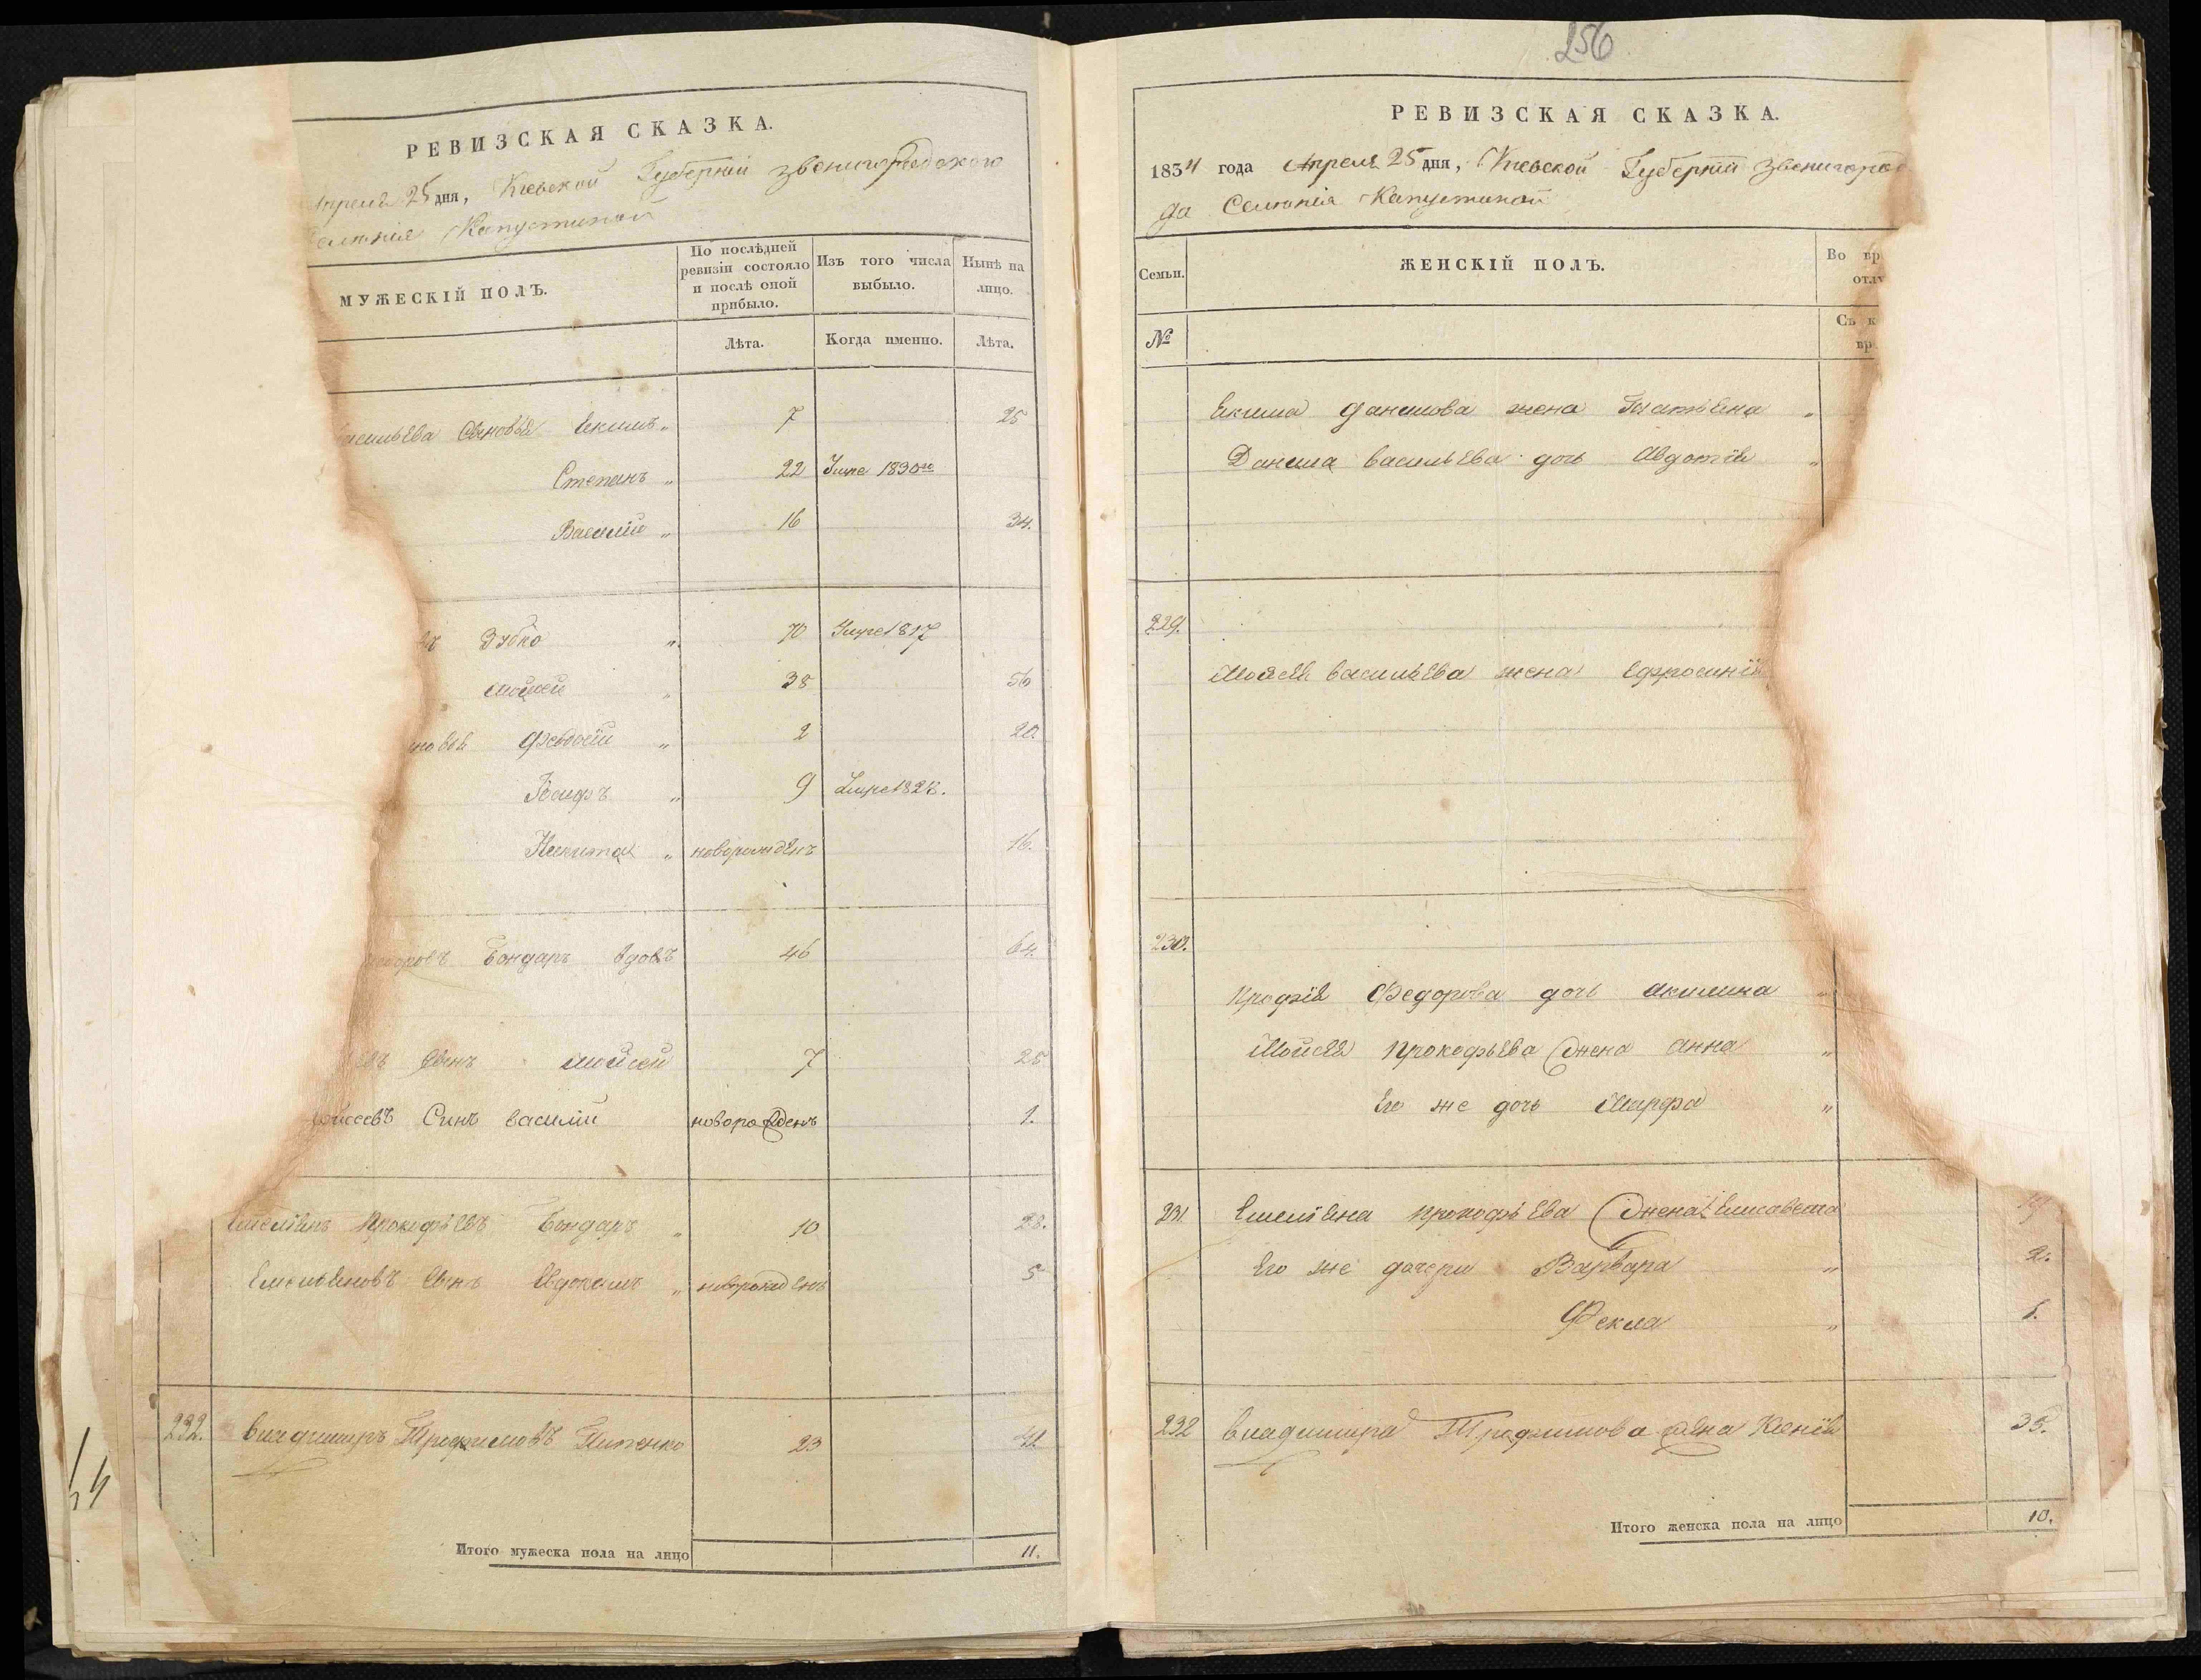 РЕВИЗСКАЯ СКАЗКА.
Апреля 25 дня, Киевской Губерніи Звенигородского
Селенія Капустиной
МУЖЕСКІЙ ПОЛЪ.
По послѣдней ревизіи состояло и послѣ оной прибыло.
Изъ того числа выбыло.
Нынѣ на лицо.
Лѣта.
Когда именно.
Лѣта.
Васильева Сыновья Екимъ „ 7 25
Степанъ „ 22 Умре 1830го
Василій „ 16 34.
Зубко „ 70 Умре 1817
Мойсей „ 38 56
Федосій „ 2 20.
Іосифъ „ 9 Умре 1828.
Никита „ новорожденъ 16.
Бондаръ вдовъ 46 64.
сынъ Мойсей 7 25
Синъ василій новорожденъ 1.
Емеліянъ Прокофьевъ Бондаръ „ 10 28.
Емельяновъ сынъ Евдокимъ „ новорожденъ 5
232. Владимиръ Трофимовъ 23 41
Итого мужеска пола на лицо 11.
256
РЕВИЗСКАЯ СКАЗКА.
1834 года Апреля 25 дня, Киевской Губерніи Звенигород
да Селенія Капустиной
Семьи.
ЖЕНСКІЙ ПОЛЪ.
Во вр
отлу
№
Съ к
вр
Екима Данилова жена Татьяна „
Данила васильева дочь Авдотія „
229.
Мойсея васильева жена Ефросинія
230.
Федорова дочь Акилина „
Мойсея Прокофьева жена анна „
Его же дочь Марфа „
231 Емеліяна прокофьева жена Елисавета 19
Его же дочери Варвара „ 2.
Фекла „ 1.
232 Владимира Трофимова жена Ксенія 35.
Итого женска пола на лицо 10.